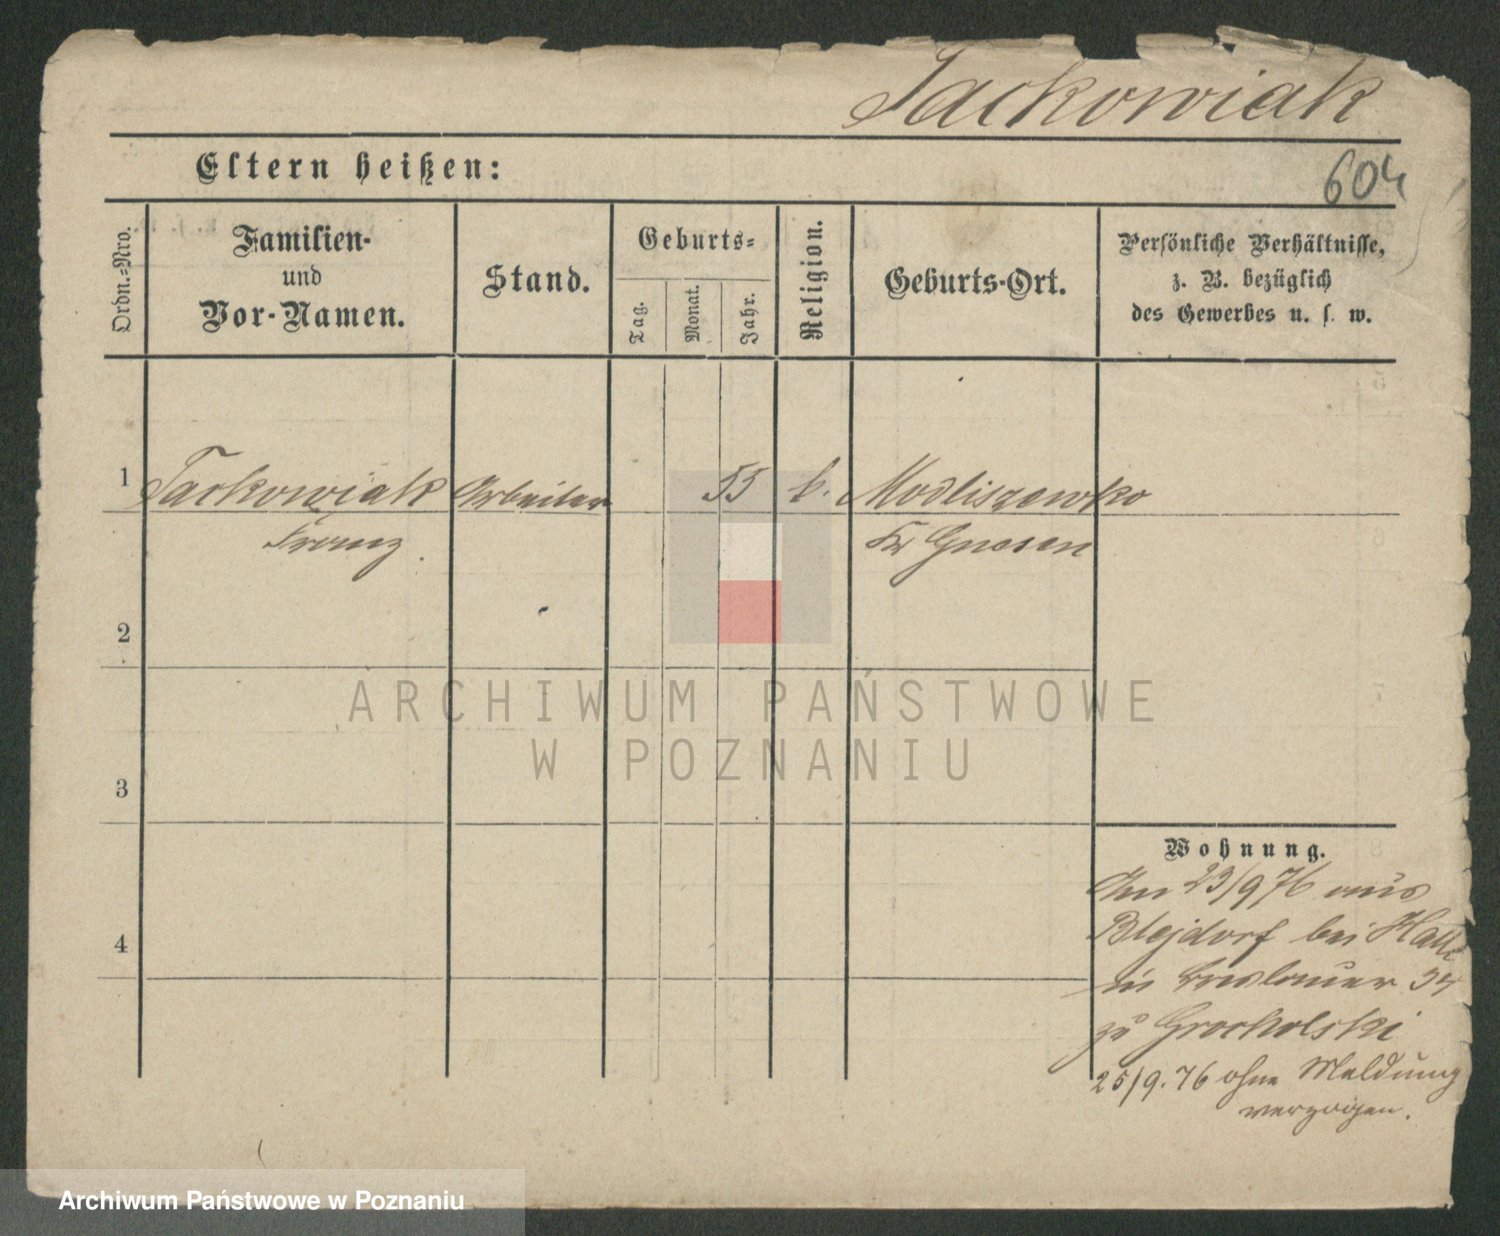 Jackowiak
604
Eltern heißen:
Ordn.-Nro.
Familien-
und
Vor-Namen.
Stand.
Geburts-
Tag.
Monat.
Jahr.
Religion.
Geburts-Ort.
Persönliche Verhältnisse,
z. B. bezüglich
des Gewerbes u. s. w.
1 Jackowiak Arbeiter 55 k. Modliszewko
Franz. Kr Gnesen
2
3
4
Wohnung.
Am 23/9 76 aus
bei Halle
in Breslauer 34
zu Grocholski
25/9.76 ohne Meldung
verzogen.
ARCHIWUM PAŃSTWOWE
W POZNANIU
Archiwum Państwowe w Poznaniu